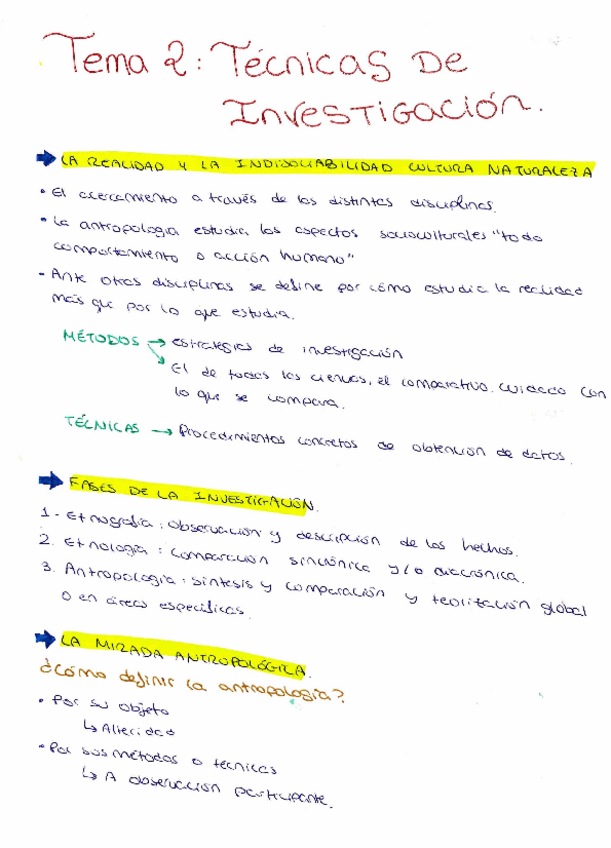 Tema 2: Técnicas De
Investigación.
LA REALIDAD Y LA INDISOCIABILIDAD CULTURA NATURALEZA
• El acercamiento a través de las distintas disciplinas.
• La antropología estudia los aspectos socioculturales "todo
comportamiento o acción humano"
- Ante otras disciplinas se define por cómo estudia la realidad
más que por lo que estudia.
MÉTODOS → estrategias de investigación
El de todas las ciencias, el comparativo. cuidado con
lo que se compara.
TÉCNICAS → Procedimientos concretos de obtención de datos.
FASES DE LA INVESTIGACIÓN.
1 - Etnografía: observación y descripción de los hechos.
2. Etnología: comparación sincrónica y/o diacrónica.
3. Antropología: síntesis y comparación y teorización global
o en áreas específicas.
LA MIRADA ANTROPOLÓGICA.
¿Cómo definir la antropología?
• Por su objeto
↳ Alteridad
• Por sus métodos o técnicas
↳ A observación participante.